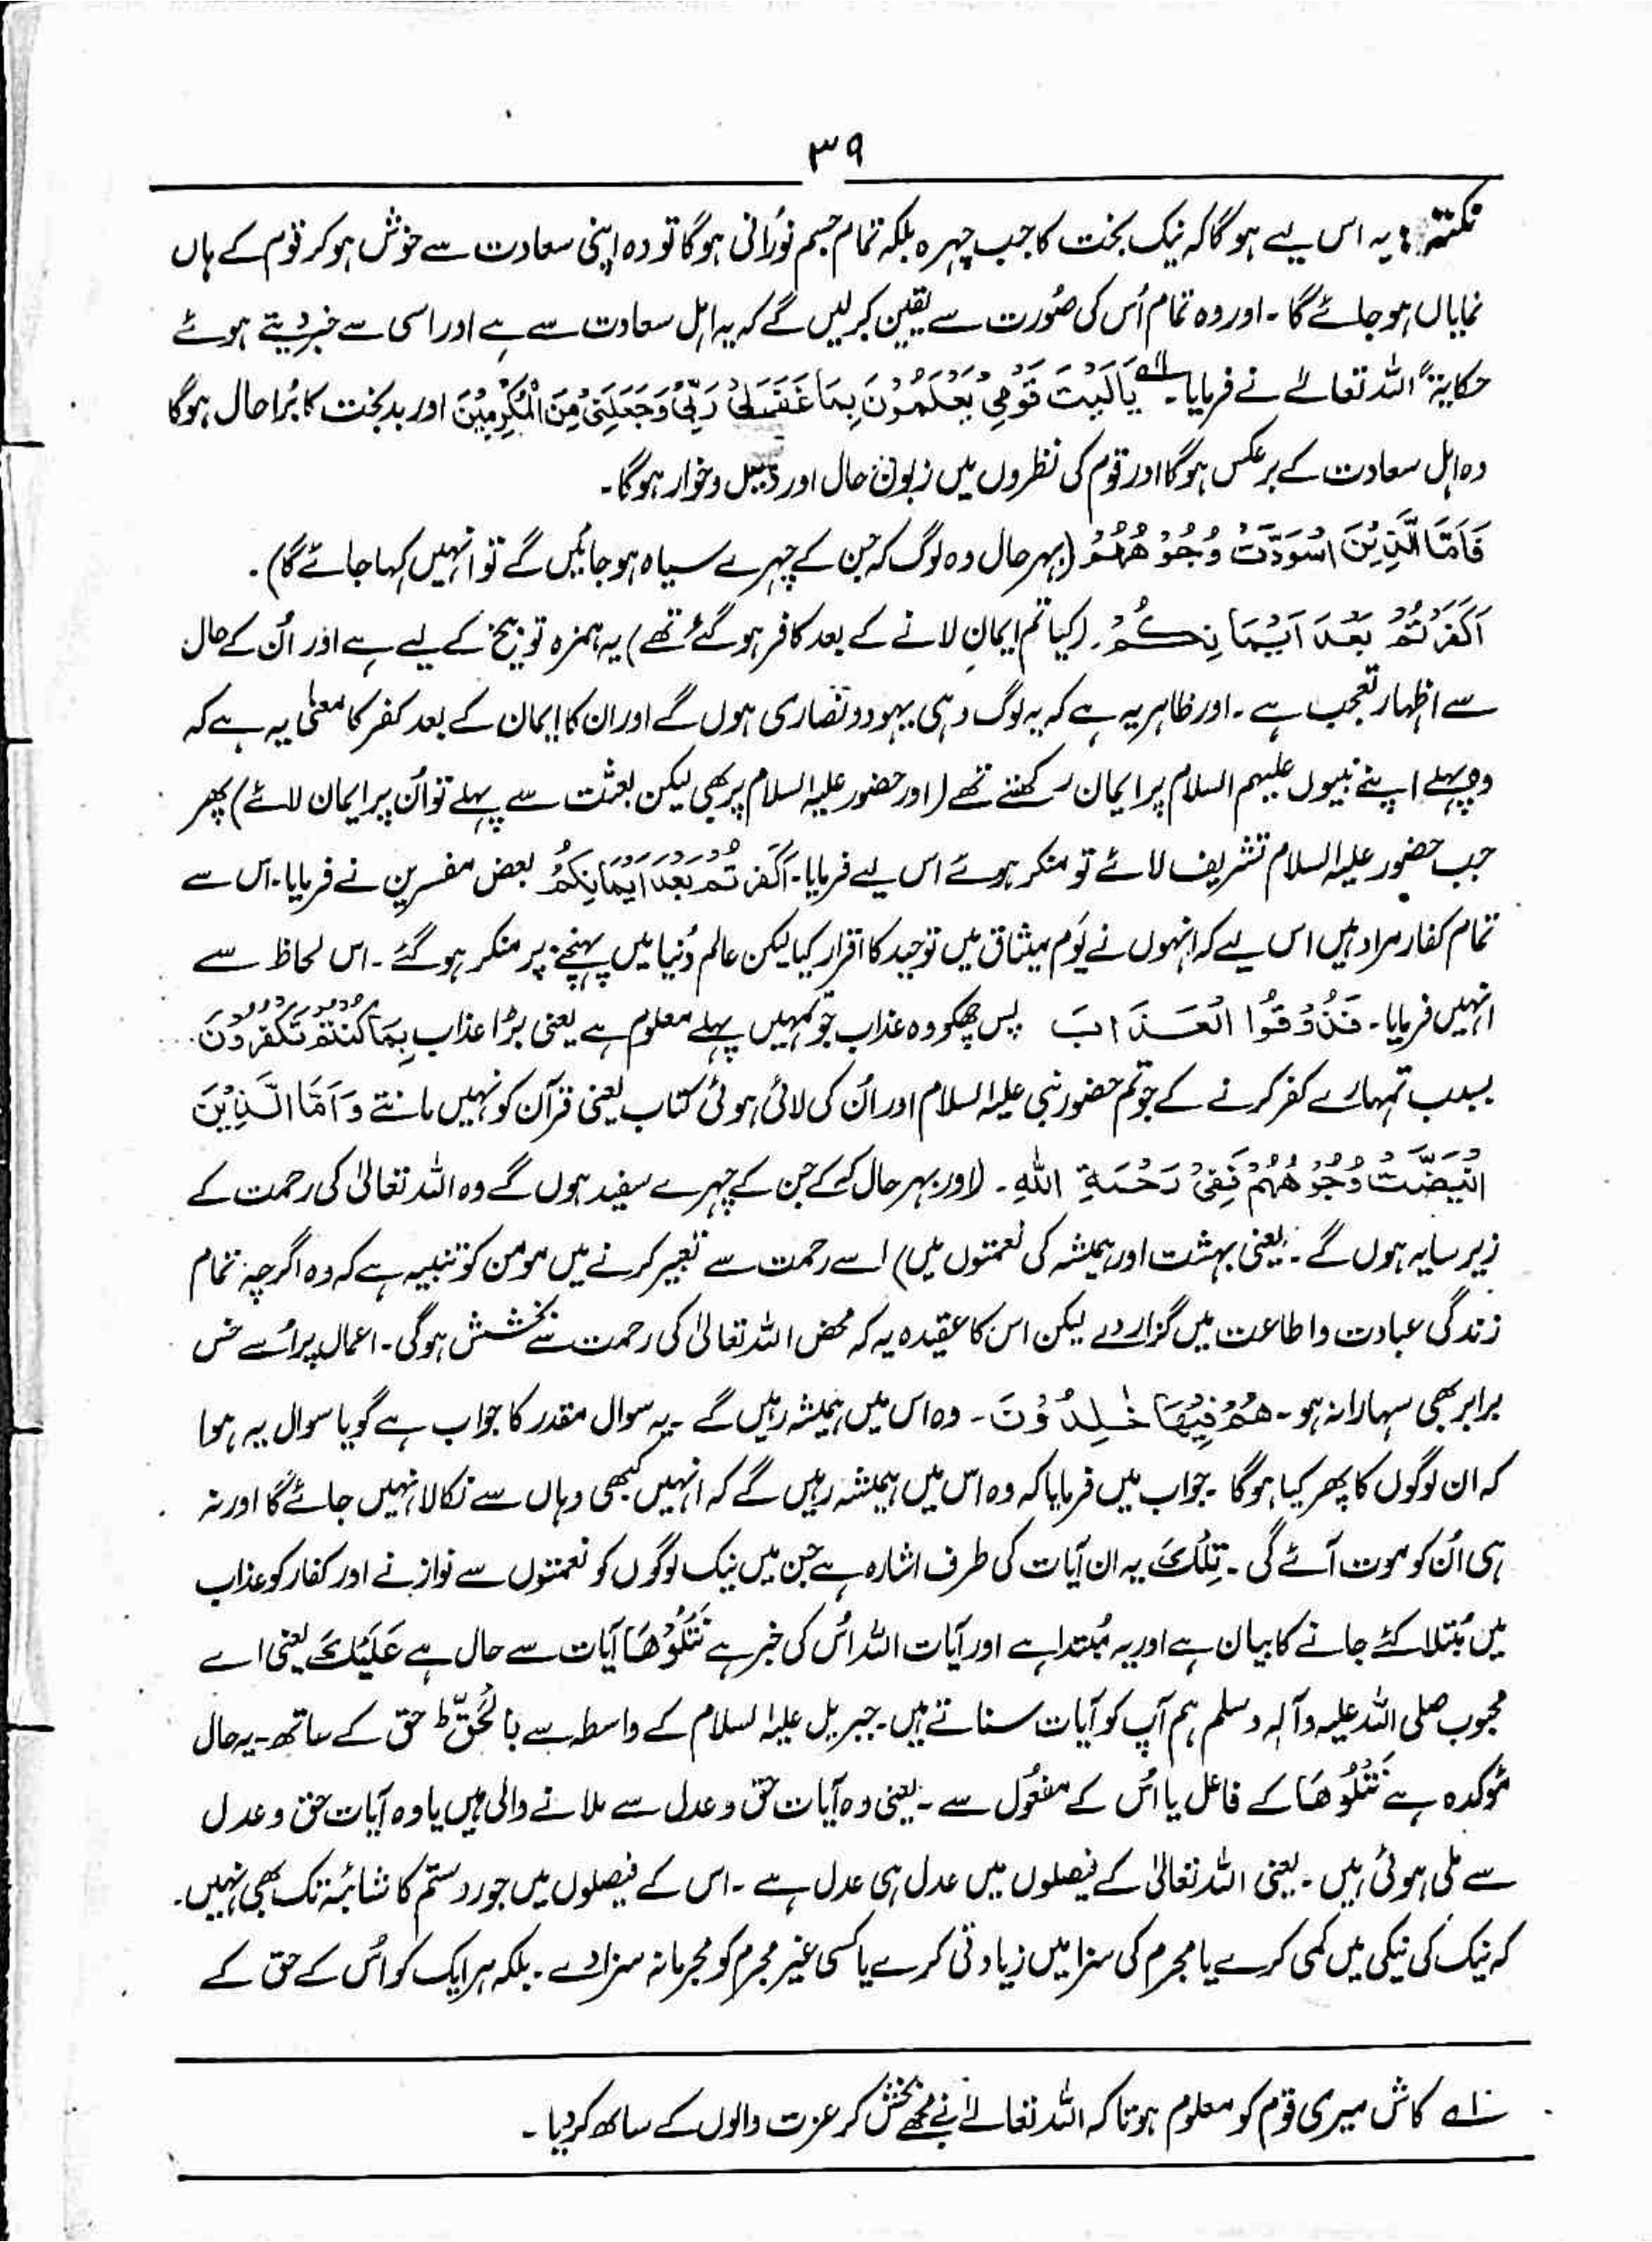 ۳۹
نکتہ: یہ اس لیے ہوگا کہ نیک بخت کا جب چہرہ بلکہ تمام جسم نُورانی ہوگا تو وہ اپنی سعادت سے خوش ہو کر قوم کے ہاں
نمایاں ہو جائے گا۔ اور وہ تمام اُس کی صُورت سے یقین کر لیں گے کہ یہ اہل سعادت سے ہے اور اسی سے خبر دیتے ہوئے
حکایۃً اللہ تعالےٰ نے فرمایا۔ یَا لَیْتَ قَوْمِیْ یَعْلَمُوْنَ بِمَا غَفَرَلِیْ رَبِّیْ وَجَعَلَنِیْ مِنَ الْمُکْرَمِیْنَ اور بدبخت کا بُرا حال ہوگا
وہ اہل سعادت کے برعکس ہوگا اور قوم کی نظروں میں زبون حال اور ذلیل و خوار ہوگا۔
فَاَمَّا الَّذِیْنَ اسْوَدَّتْ وُجُوْھُھُمْ (بہر حال وہ لوگ کہ جن کے چہرے سیاہ ہو جائیں گے تو انہیں کہا جائے گا)۔
اَکَفَرْتُمْ بَعْدَ اَیْمَا نِکُمْ۔ (کیا تم ایمان لانے کے بعد کافر ہو گئے تھے) یہ ہمزہ توبیخ کے لیے ہے اور اُن کے حال
سے اظہار تعجب ہے۔ اور ظاہر یہ ہے کہ یہ لوگ وہی یہود و نصاریٰ ہوں گے اور ان کا ایمان کے بعد کفر کا معنیٰ یہ ہے کہ
وہ پہلے اپنے نبیوں علیہم السلام پر ایمان رکھتے تھے (اور حضور علیہ السلام پر بھی لیکن بعثت سے پہلے تو اُن پر ایمان لائے) پھر
جب حضور علیہ السلام تشریف لائے تو منکر ہوئے اس لیے فرمایا۔ اَکَفَرْ تُمْ بَعْدَ اَیْمَانِکُمْ بعض مفسرین نے فرمایا۔ اس سے
تمام کفار مراد ہیں اس لیے کہ انہوں نے یَوم میثاق میں توحید کا اقرار کیا لیکن عالم دُنیا میں پہنچنے پر منکر ہو گئے۔ اس لحاظ سے
انہیں فرمایا۔ فَذُوْقُوا الْعَـذَابَ پس چکھو وہ عذاب جو تمہیں پہلے معلوم ہے یعنی بڑا عذاب بِمَا کُنْتُمْ تَکْفُرُوْنَ
بسبب تمہارے کفر کرنے کے جو تم حضور نبی علیہ السلام اور اُن کی لائی ہوئی کتاب یعنی قرآن کو نہیں مانتے وَ اَمَّا الَّـذِیْنَ
ابْیَضَّتْ وُجُوْھُھُمْ فَفِیْ رَحْمَۃِ اللّٰہِ۔ (اور بہر حال کہ جن کے چہرے سفید ہوں گے وہ اللہ تعالیٰ کی رحمت کے
زیر سایہ ہوں گے۔ یعنی بہشت اور ہمیشہ کی نعمتوں میں) اسے رحمت سے تعبیر کرنے میں مومن کو تنبیہ ہے کہ وہ اگرچہ تمام
زندگی عبادت و اطاعت میں گزار دے لیکن اس کا عقیدہ یہ کہ محض اللہ تعالیٰ کی رحمت سے بخشش ہوگی۔ اعمال پر اُسے خس
برابر بھی سہارا نہ ہو۔ ھُمْ فِیْھَا خٰلِدُوْنَ۔ وہ اس میں ہمیشہ رہیں گے۔ یہ سوال مقدر کا جواب ہے گویا سوال یہ ہوا
کہ ان لوگوں کا پھر کیا ہوگا۔ جواب میں فرمایا کہ وہ اس میں ہمیشہ رہیں گے کہ انہیں کبھی وہاں سے نکالا نہیں جائے گا اور نہ
ہی اُن کو موت آئے گی۔ تِلْکَ یہ ان آیات کی طرف اشارہ ہے جن میں نیک لوگوں کو نعمتوں سے نوازنے اور کفار کو عذاب
میں مُبتلا کئے جانے کا بیان ہے اور یہ مُبتدا ہے اور آیات اللہ اُس کی خبر ہے نَتْلُوْھَا آیات سے حال ہے عَلَیْکَ یعنی اے
محبوب صلی اللہ علیہ وآلہٖ وسلم ہم آپ کو آیات سناتے ہیں۔ جبریل علیہ السلام کے واسطہ سے بِالْحَقِّ ط حق کے ساتھ۔ یہ حال
مؤکدہ ہے نَتْلُوْھَا کے فاعل یا اُس کے مفعُول سے۔ یعنی وہ آیات حق و عدل سے ملانے والی ہیں یا وہ آیات حق و عدل
سے ملی ہوئی ہیں۔ یعنی اللہ تعالیٰ کے فیصلوں میں عدل ہی عدل ہے۔ اس کے فیصلوں میں جور و ستم کا شائبہ تک بھی نہیں۔
کہ نیک کی نیکی میں کمی کرے یا مجرم کی سزا میں زیادتی کرے یا کسی غیر مجرم کو مجرمانہ سزا دے۔ بلکہ ہر ایک کو اُس کے حق کے
کاش میری قوم کو معلوم ہوتا کہ اللہ تعالےٰ نے مجھے بخش کر عزت والوں کے ساتھ کر دیا۔